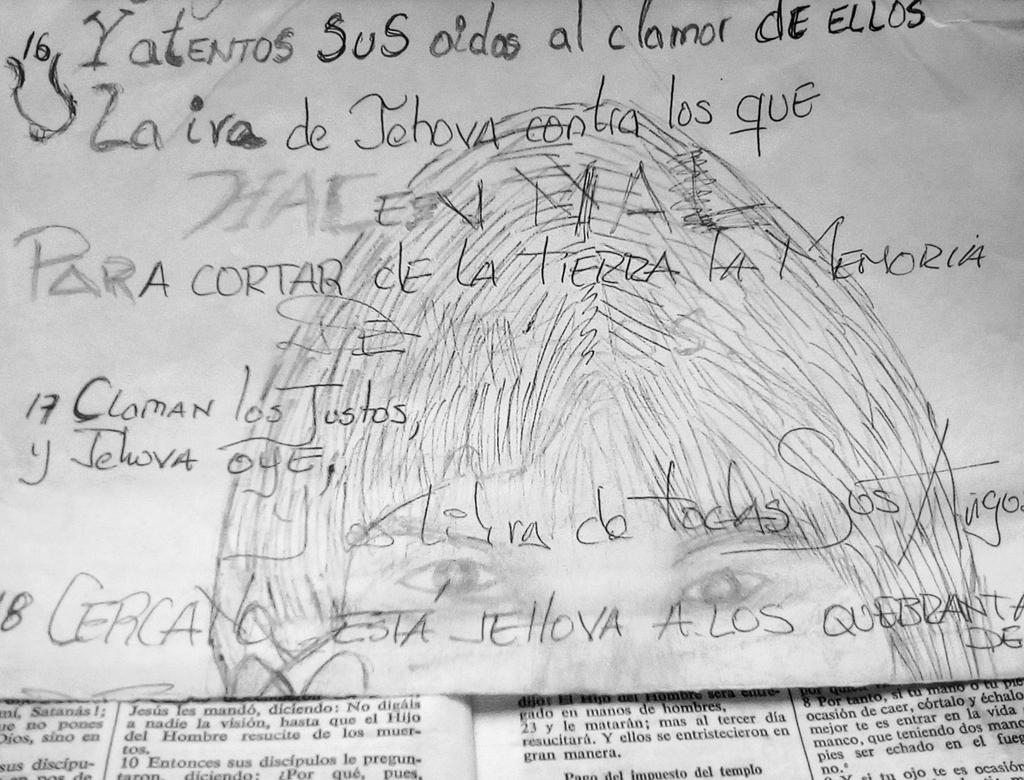 Y atENTOS SUS oidos al clamor dE ELLOS
16
La ira de Jehova contra los que
HACEN MAL
PARA CORTAR dE LA tIERRA LA MEMORIA
DE
17 ClamAN los Justos,
y Jehova OYE,
Y los libra de todas Sus
18 CERCANO ESTÁ JEHOVA A LOS QUEBRANTA
DE
mí, Satanás!;
ue no pones
Dios, sino en
sus discípu-
Jesús les mandó, diciendo: No digáis
a nadie la visión, hasta que el Hijo
del Hombre resucite de los muer-
tos.
10 Entonces sus discípulos le pregun-
taron, diciendo: ¿Por qué, pues,
dijo: El Hijo del Hombre será entre-
gado en manos de hombres,
23 y le matarán; mas al tercer día
resucitará. Y ellos se entristecieron en
gran manera.
Pago del impuesto del templo
8 Por tanto, si tu mano o tu pie
ocasión de caer, córtalo y échalo
mejor te es entrar en la vida
manco, que teniendo dos man
pies ser echado en el fueg
no.
si tu ojo te es ocasió